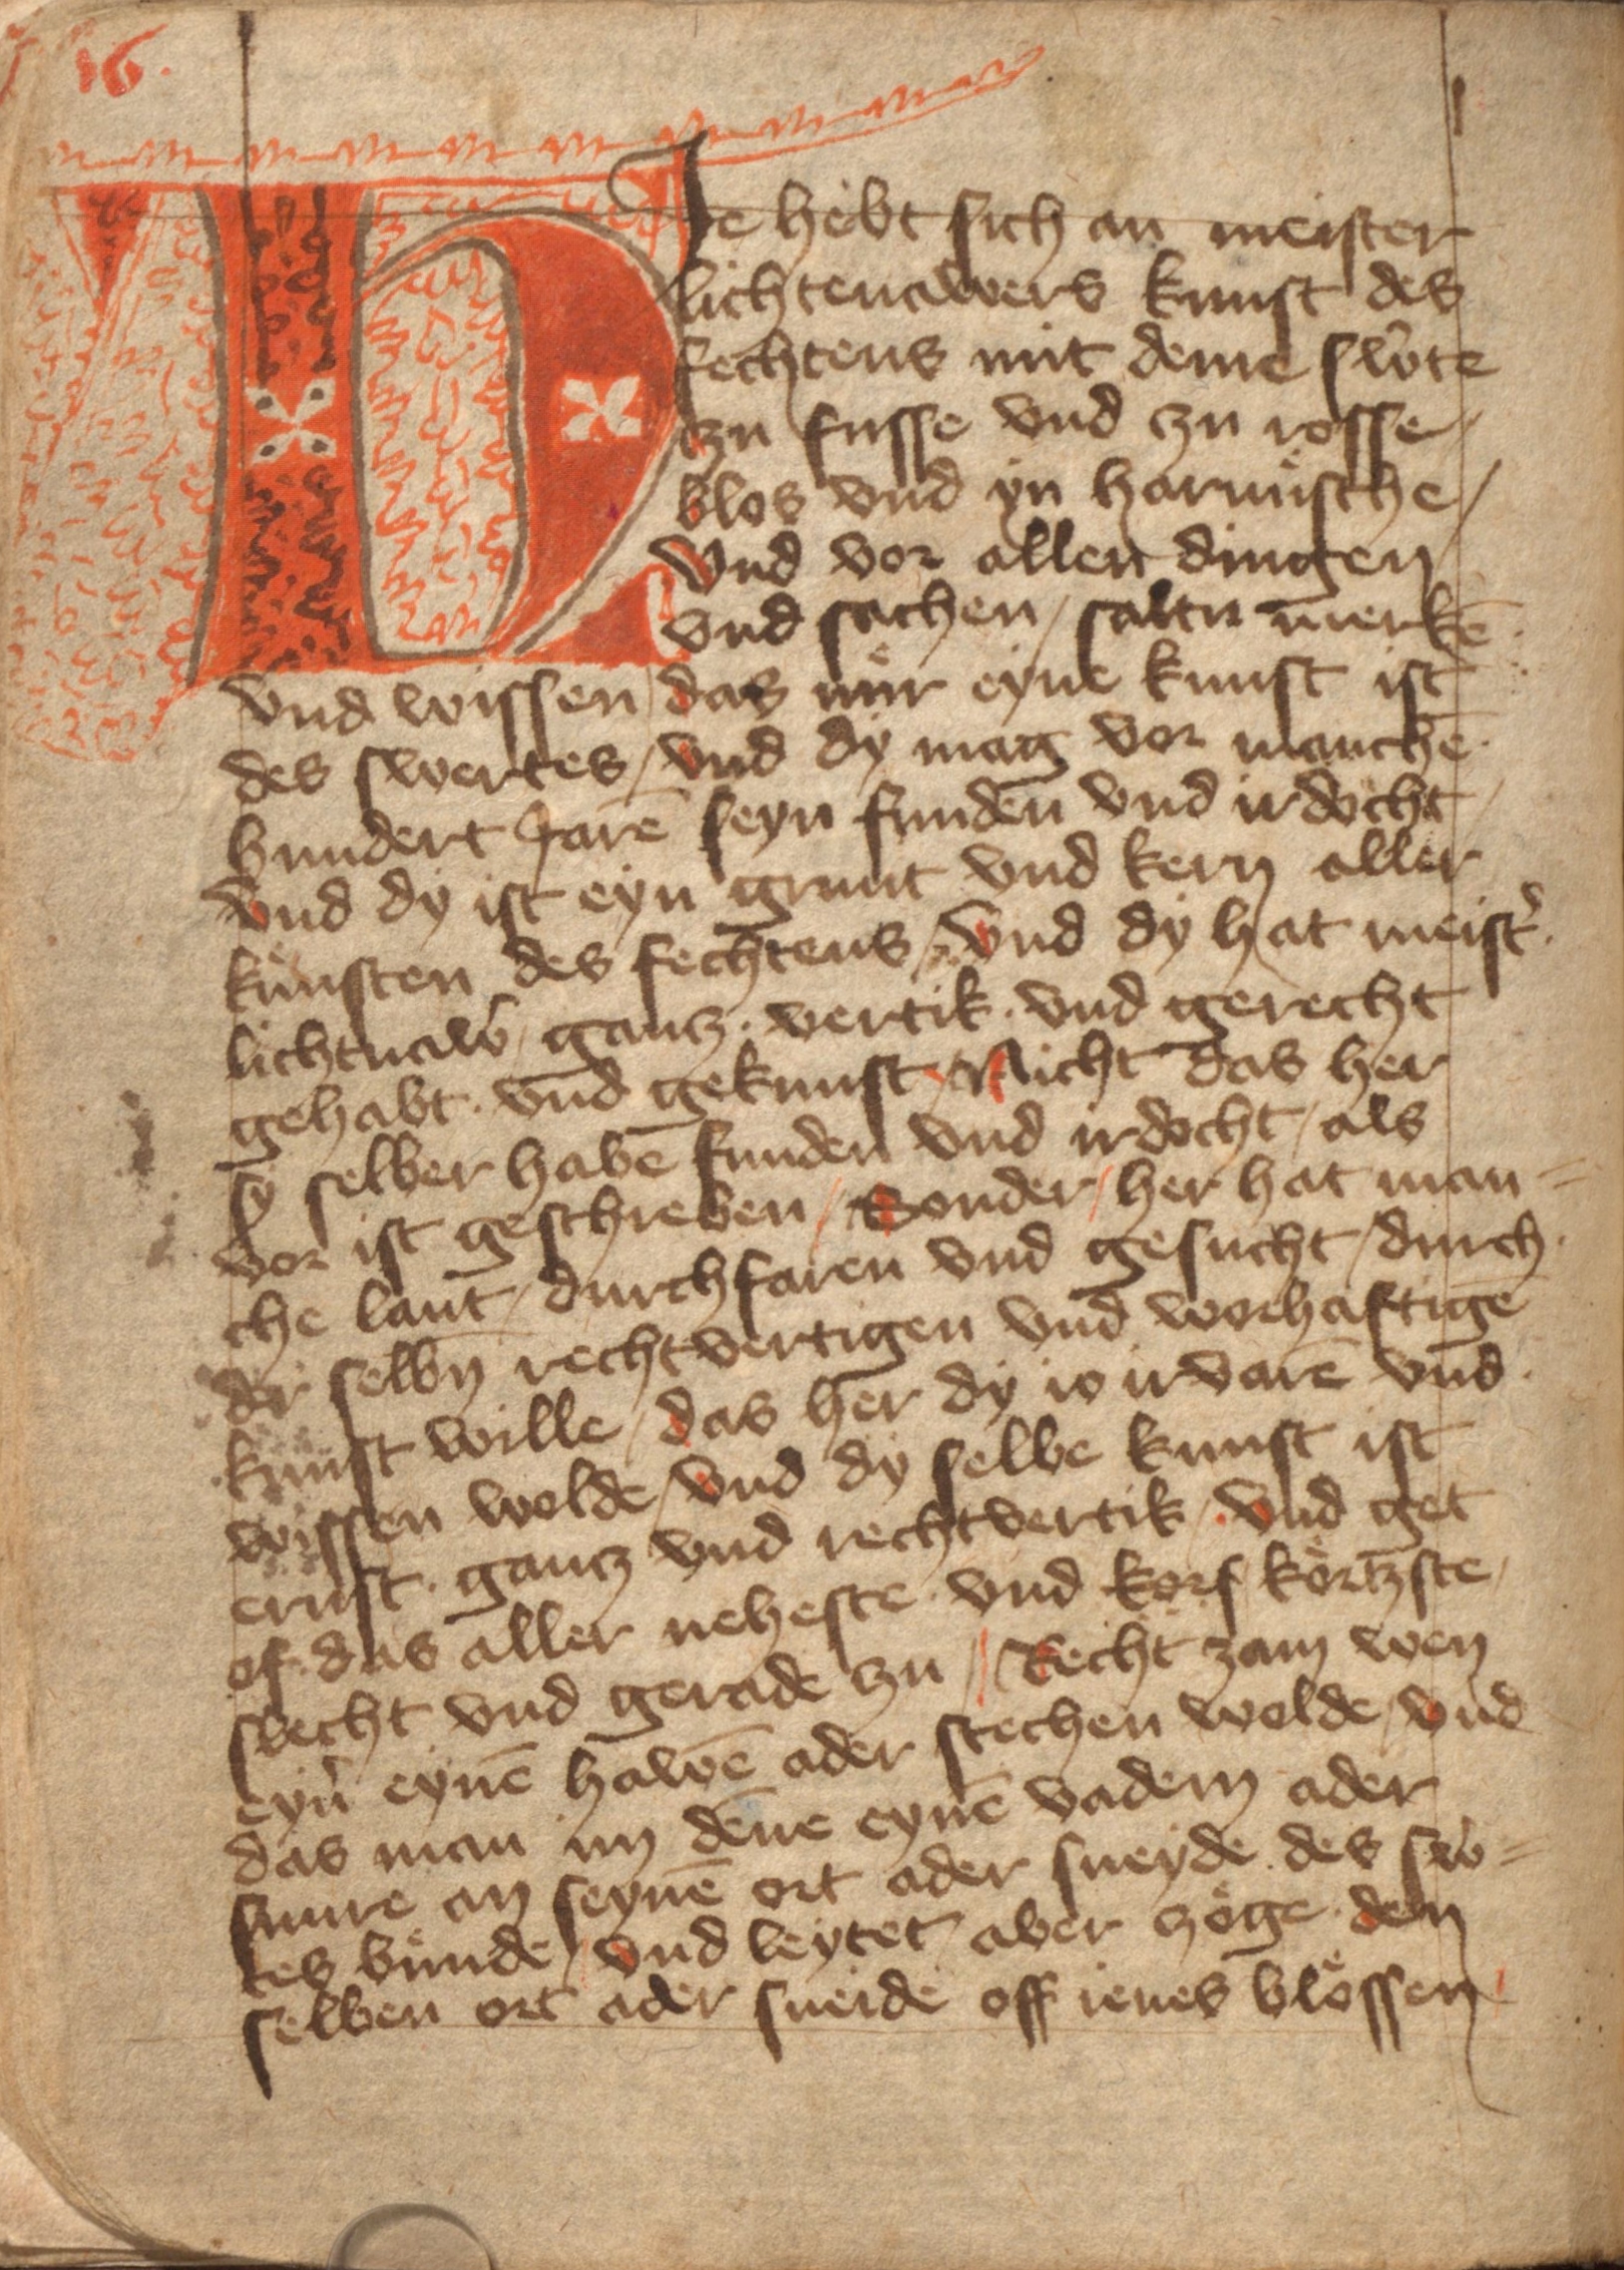 16.
HIe hebt sich an meister
lichtenawers kunst des
fechtens mit deme sw̑te
czu fusse vnd czu rosse /
blos vnd yn harnuͤsche /
Vnd vor allen dingen
vnd sachen / saltu merkē
vnd wissen / das nuͤr eyne kunst ist
des swertes / vnd dy mag vor manchē
hundert Jarē seyn funden vnd irdocht /
Vnd dy ist eyn grunt vnd kern aller
kuͤnsten des fechtens / Vnd dy hat meist̑
lichtnaw̑ / gancz · vertik · vnd gerecht
gehabt · vnd gekunst / Nicht das her
sy selber habē funden vnd irdocht / als
vor ist geschreben / Sonder / her hat man=
che lant / durchfaren vnd gesucht / durch
der selbn̄ rechtvertigen vnd worhaftigē
kunst wille / das her dy io irvarē vnd
wissen welde / Vnd dy selbe kunst ist
ernst · gancz vnd rechtvertik · Vnd get
of · das aller neheste · vnd korſ koͤrtzste /
slecht vnd gerade czu // Recht zam wen
eyn̑ eynē hawē ader stechen welde / vnd
das man im dēne eynē vadem ader
snure an seynē ort ader sneyde · des sw̑=
tes buͤnde / vnd leytet / aber czoͤge · den
selben ort ader sneide off ienes bloͤssen